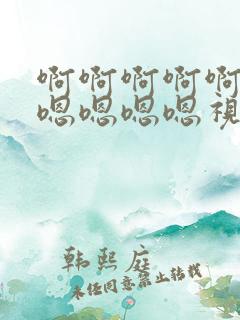 啊啊啊啊啊
嗯嗯嗯嗯视
韩熙庭
未经同意禁止转载